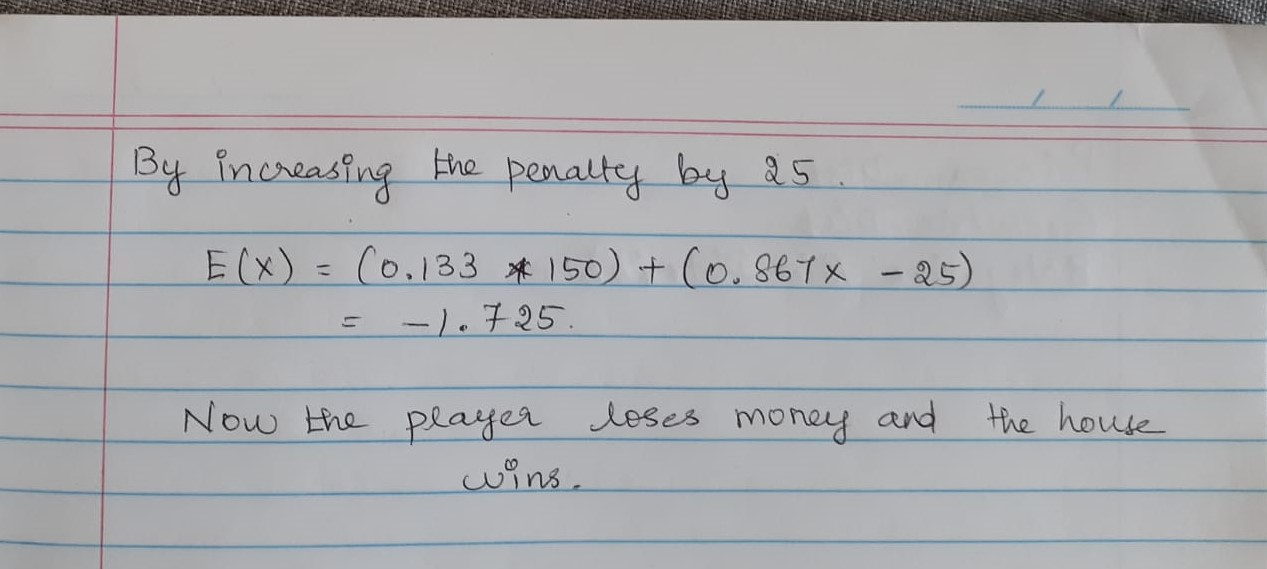 By increasing the penalty by 25.
E(X) = (0.133 * 150) + (0.867x - 25)
= -1.725.
Now the player loses money and the house
wins.